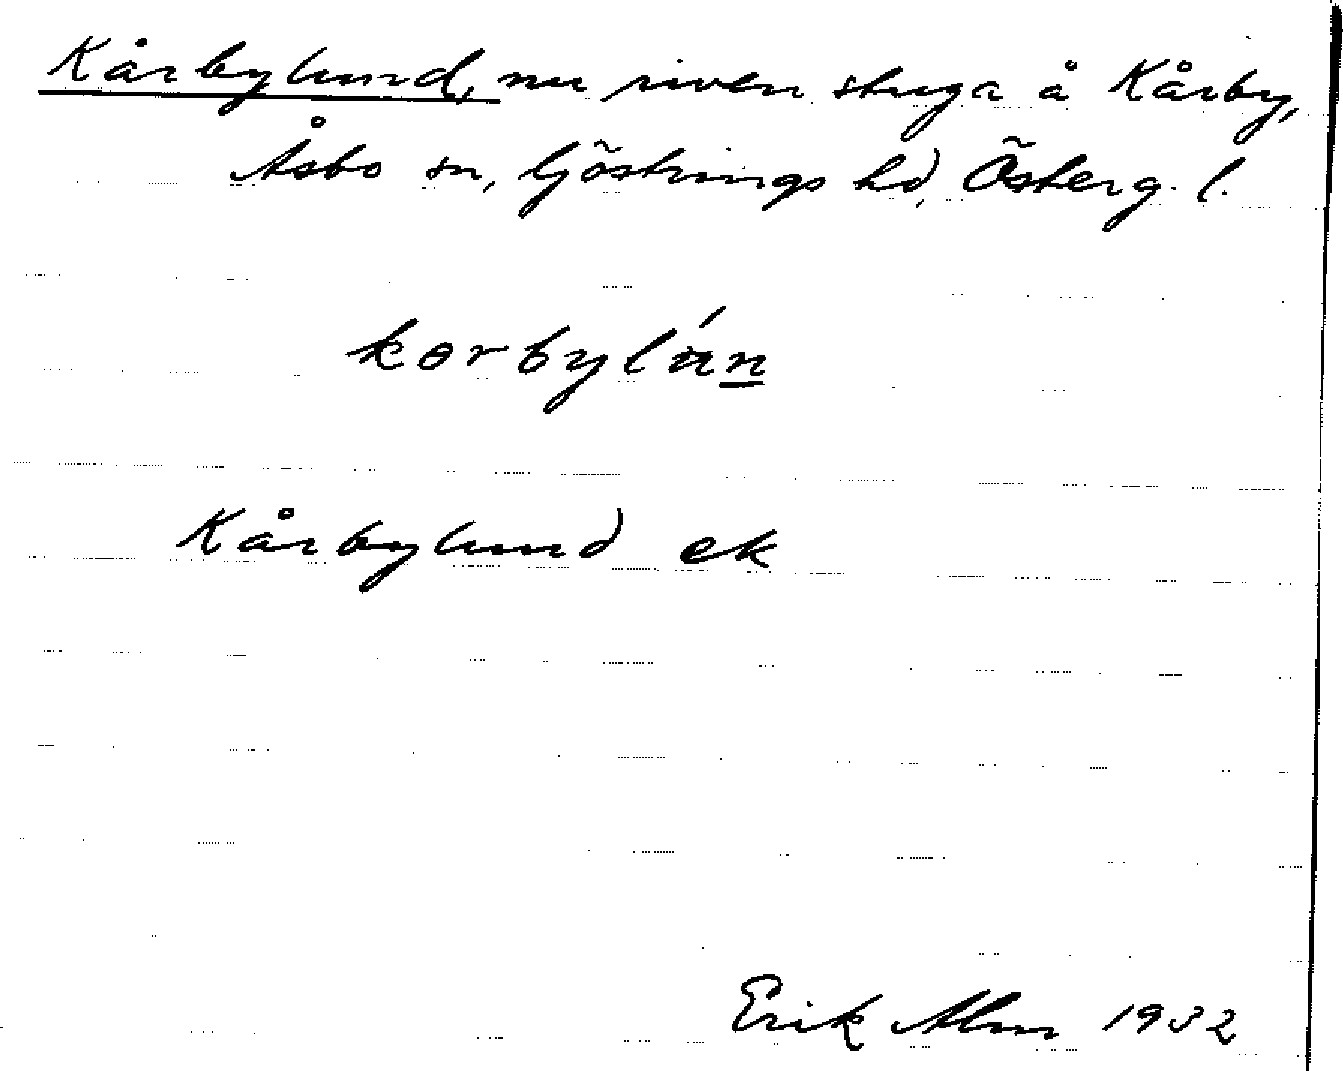 Kårbylund, nu riven stuga å Kårby,
Åsbo sn, Göstrings hd, Österg. l.
kɵrbylán
Kårbylund ek
Erik Alm 1932